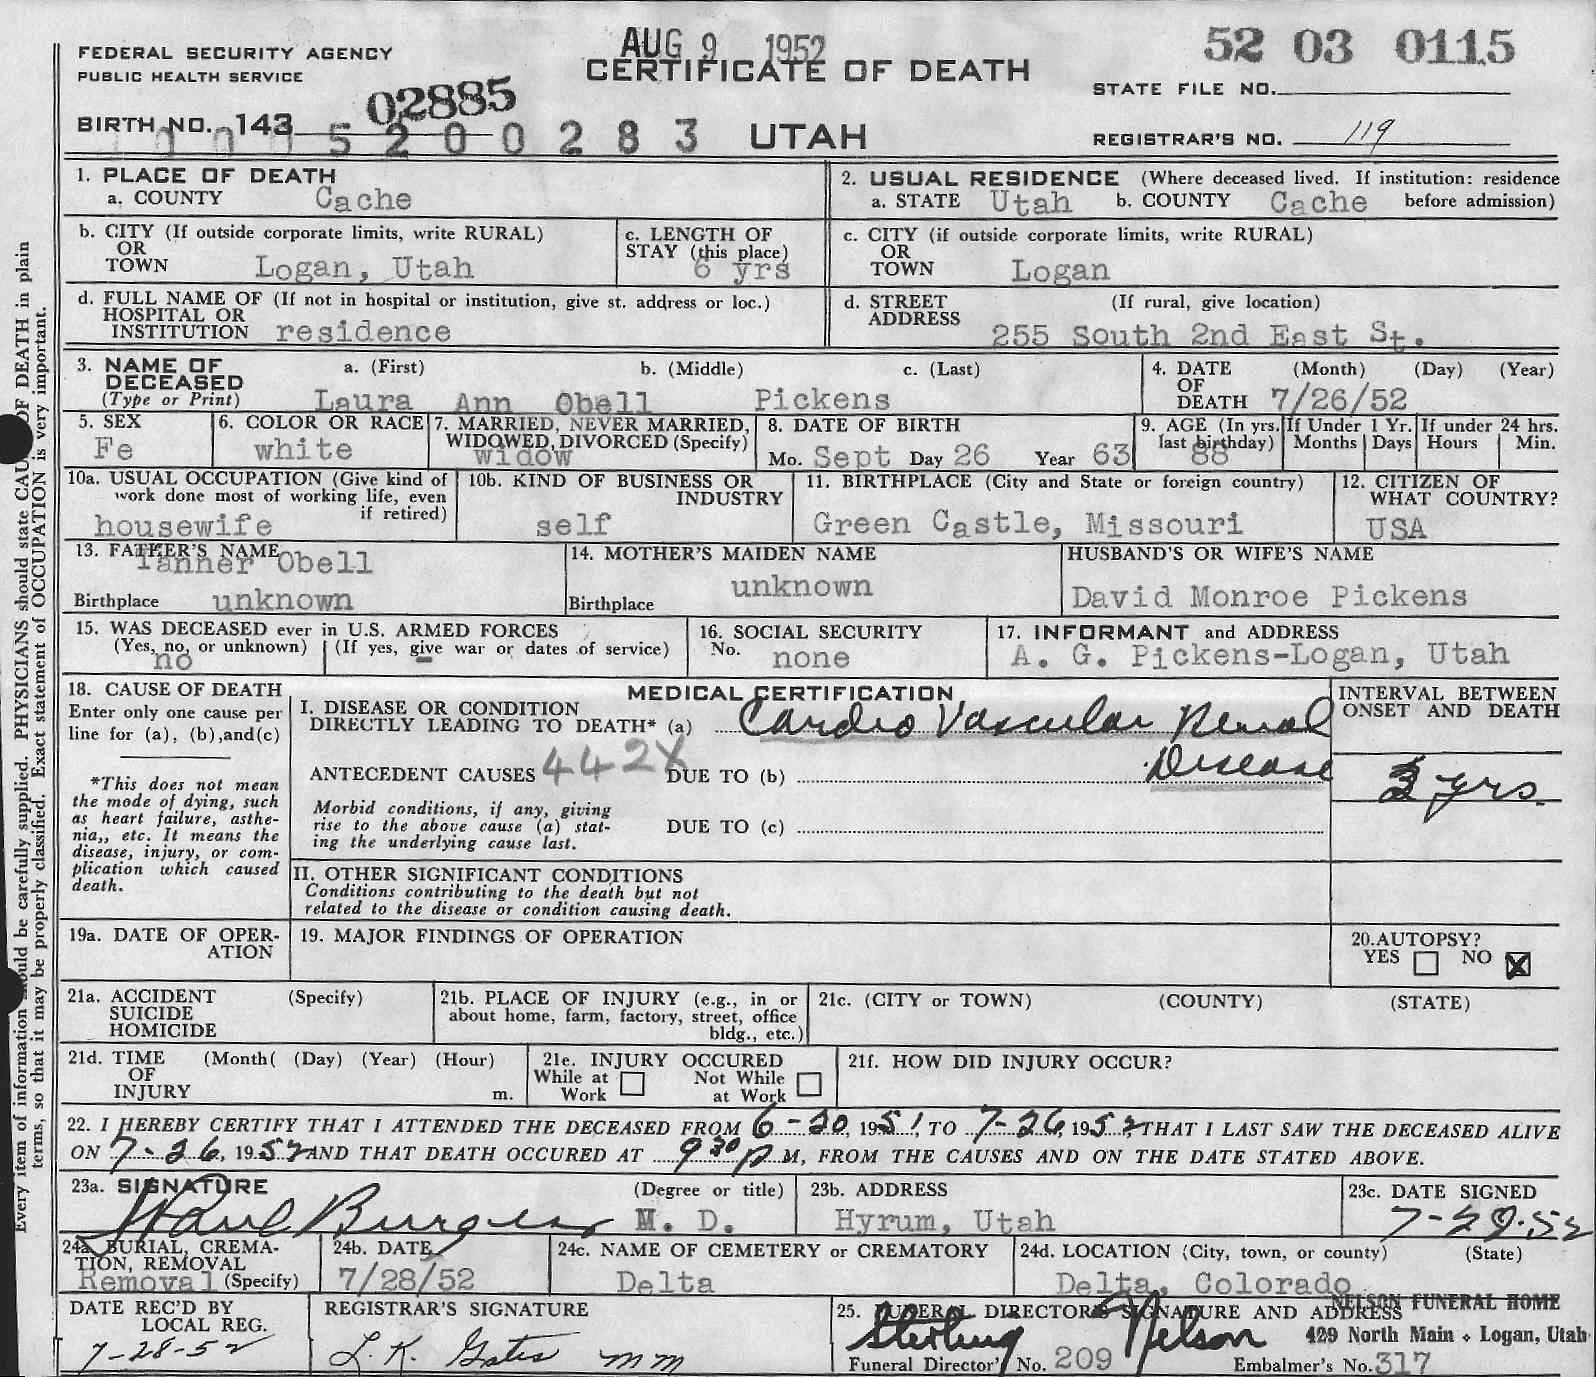 AUG 9 1952
52 03 0115
FEDERAL SECURITY AGENCY
PUBLIC HEALTH SERVICE
CERTIFICATE OF DEATH
STATE FILE NO.
02885
BIRTH NO. 143
5 2 0 0 2 8 3
UTAH
REGISTRAR'S NO. 119
1. PLACE OF DEATH
a. COUNTY Cache
2. USUAL RESIDENCE (Where deceased lived. If institution: residence
a. STATE Utah b. COUNTY Cache before admission)
b. CITY (If outside corporate limits, write RURAL)
OR
TOWN Logan, Utah
c. LENGTH OF
STAY (this place)
6 yrs
c. CITY (if outside corporate limits, write RURAL)
OR
TOWN Logan
d. FULL NAME OF (If not in hospital or institution, give st. address or loc.)
HOSPITAL OR
INSTITUTION residence
d. STREET (If rural, give location)
ADDRESS
255 South 2nd East St.
3. NAME OF a. (First) b. (Middle) c. (Last)
DECEASED
(Type or Print) Laura Ann Obell Pickens
4. DATE (Month) (Day) (Year)
OF
DEATH 7/26/52
5. SEX
Fe
6. COLOR OR RACE
white
7. MARRIED, NEVER MARRIED,
WIDOWED, DIVORCED (Specify)
widow
8. DATE OF BIRTH
Mo. Sept Day 26 Year 63
9. AGE (In yrs.
last birthday)
88
If Under 1 Yr.
Months Days
If under 24 hrs.
Hours Min.
10a. USUAL OCCUPATION (Give kind of
work done most of working life, even
if retired)
housewife
10b. KIND OF BUSINESS OR
INDUSTRY
self
11. BIRTHPLACE (City and State or foreign country)
Green Castle, Missouri
12. CITIZEN OF
WHAT COUNTRY?
USA
13. FATHER'S NAME
Tanner Obell
Birthplace unknown
14. MOTHER'S MAIDEN NAME
unknown
Birthplace
HUSBAND'S OR WIFE'S NAME
David Monroe Pickens
15. WAS DECEASED ever in U.S. ARMED FORCES
(Yes, no, or unknown) (If yes, give war or dates of service)
no -
16. SOCIAL SECURITY
No. none
17. INFORMANT and ADDRESS
A. G. Pickens-Logan, Utah
18. CAUSE OF DEATH
Enter only one cause per
line for (a), (b),and(c)
*This does not mean
the mode of dying, such
as heart failure, asthe-
nia,, etc. It means the
disease, injury, or com-
plication which caused
death.
MEDICAL CERTIFICATION
I. DISEASE OR CONDITION
DIRECTLY LEADING TO DEATH* (a) Cardio Vascular Renal
Disease
ANTECEDENT CAUSES 442X DUE TO (b)
Morbid conditions, if any, giving
rise to the above cause (a) stat-
ing the underlying cause last.
DUE TO (c)
INTERVAL BETWEEN
ONSET AND DEATH
3 yrs.
II. OTHER SIGNIFICANT CONDITIONS
Conditions contributing to the death but not
related to the disease or condition causing death.
19a. DATE OF OPER-
ATION
19. MAJOR FINDINGS OF OPERATION
20.AUTOPSY?
YES NO X
21a. ACCIDENT (Specify)
SUICIDE
HOMICIDE
21b. PLACE OF INJURY (e.g., in or
about home, farm, factory, street, office
bldg., etc.)
21c. (CITY or TOWN) (COUNTY) (STATE)
21d. TIME (Month( (Day) (Year) (Hour)
OF
INJURY m.
21e. INJURY OCCURED
While at Work Not While at Work
21f. HOW DID INJURY OCCUR?
22. I HEREBY CERTIFY THAT I ATTENDED THE DECEASED FROM 6-20, 1951, TO 7-26, 1952, THAT I LAST SAW THE DECEASED ALIVE
ON 7-26, 1952 AND THAT DEATH OCCURED AT 9 30 P M, FROM THE CAUSES AND ON THE DATE STATED ABOVE.
23a. SIGNATURE (Degree or title)
Burgess M. D.
23b. ADDRESS
Hyrum, Utah
23c. DATE SIGNED
7-29-52
24a. BURIAL, CREMA-
TION, REMOVAL
Removal (Specify)
24b. DATE
7/28/52
24c. NAME OF CEMETERY or CREMATORY
Delta
24d. LOCATION (City, town, or county) (State)
Delta, Colorado
DATE REC'D BY
LOCAL REG.
7-28-52
REGISTRAR'S SIGNATURE
L. K. Gates mm
25. FUNERAL DIRECTOR'S SIGNATURE AND ADDRESS
Sterling Nelson
NELSON FUNERAL HOME
429 North Main • Logan, Utah
Funeral Director' No. 209 Embalmer's No. 317
Every item of information should be carefully supplied. PHYSICIANS should state CAUSE OF DEATH in plain
terms, so that it may be properly classified. Exact statement of OCCUPATION is very important.